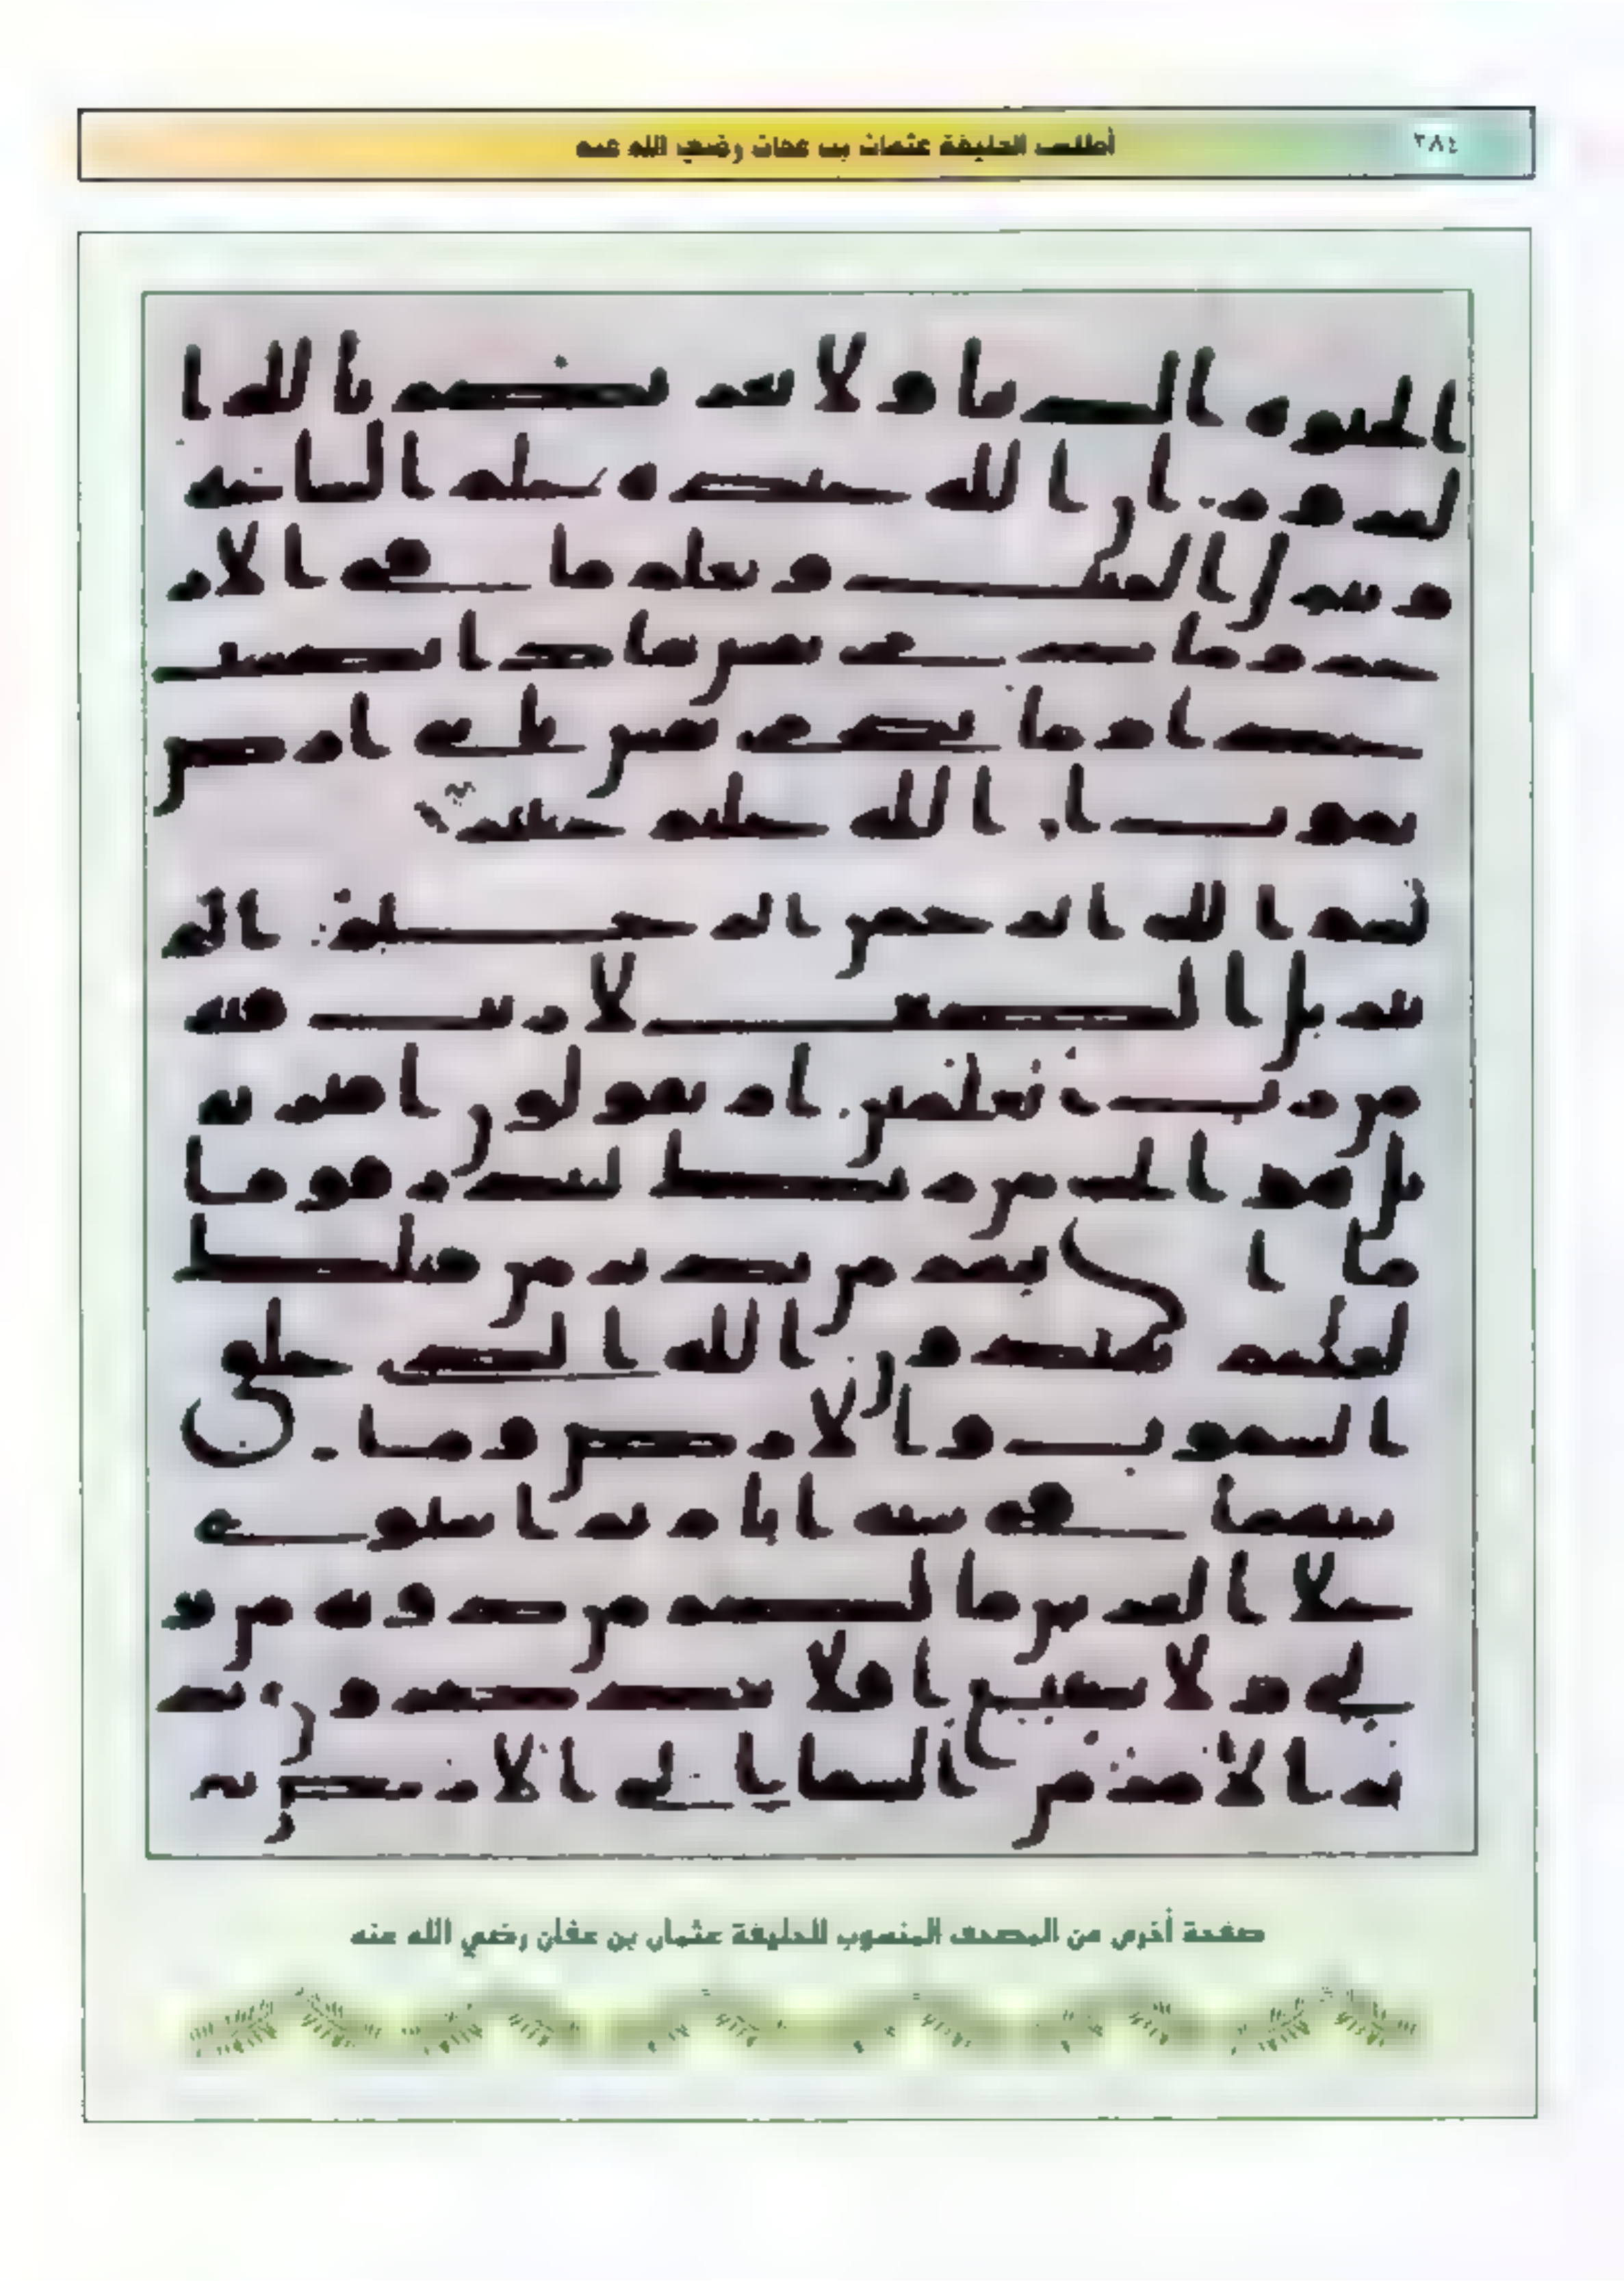 أطلس الخليفة عثمان بن عفان رضي الله عنه
٣٨٤
الحيوه الدنيا ولا يغرنكم بالله ا
لغرور ان الله عنده علم الساعه
وينزل الغيث ويعلم ما في الار
حام وما تدري نفس ماذا تكسب
غدا وما تدري نفس باي ارض
تموت ان الله عليم خبير
بسم الله الرحمن الرحيم الم
تنزيل الكتب لا ريب فيه
من رب العلمين ام يقولون افتريه
بل هو الحق من ربك لتنذر قوما
ما ا تيهم من نذير من قبلك
لعلهم يهتدون الله الذي خلق
السموت والارض وما
بينهما في سته ايام ثم استوى
على العرش ما لكم من دونه من و
لي ولا شفيع افلا تتذكرون يد
بر الامر من السما الى الارض ثم
صفحة أخرى من المصحف المنسوب للخليفة عثمان بن عفان رضي الله عنه